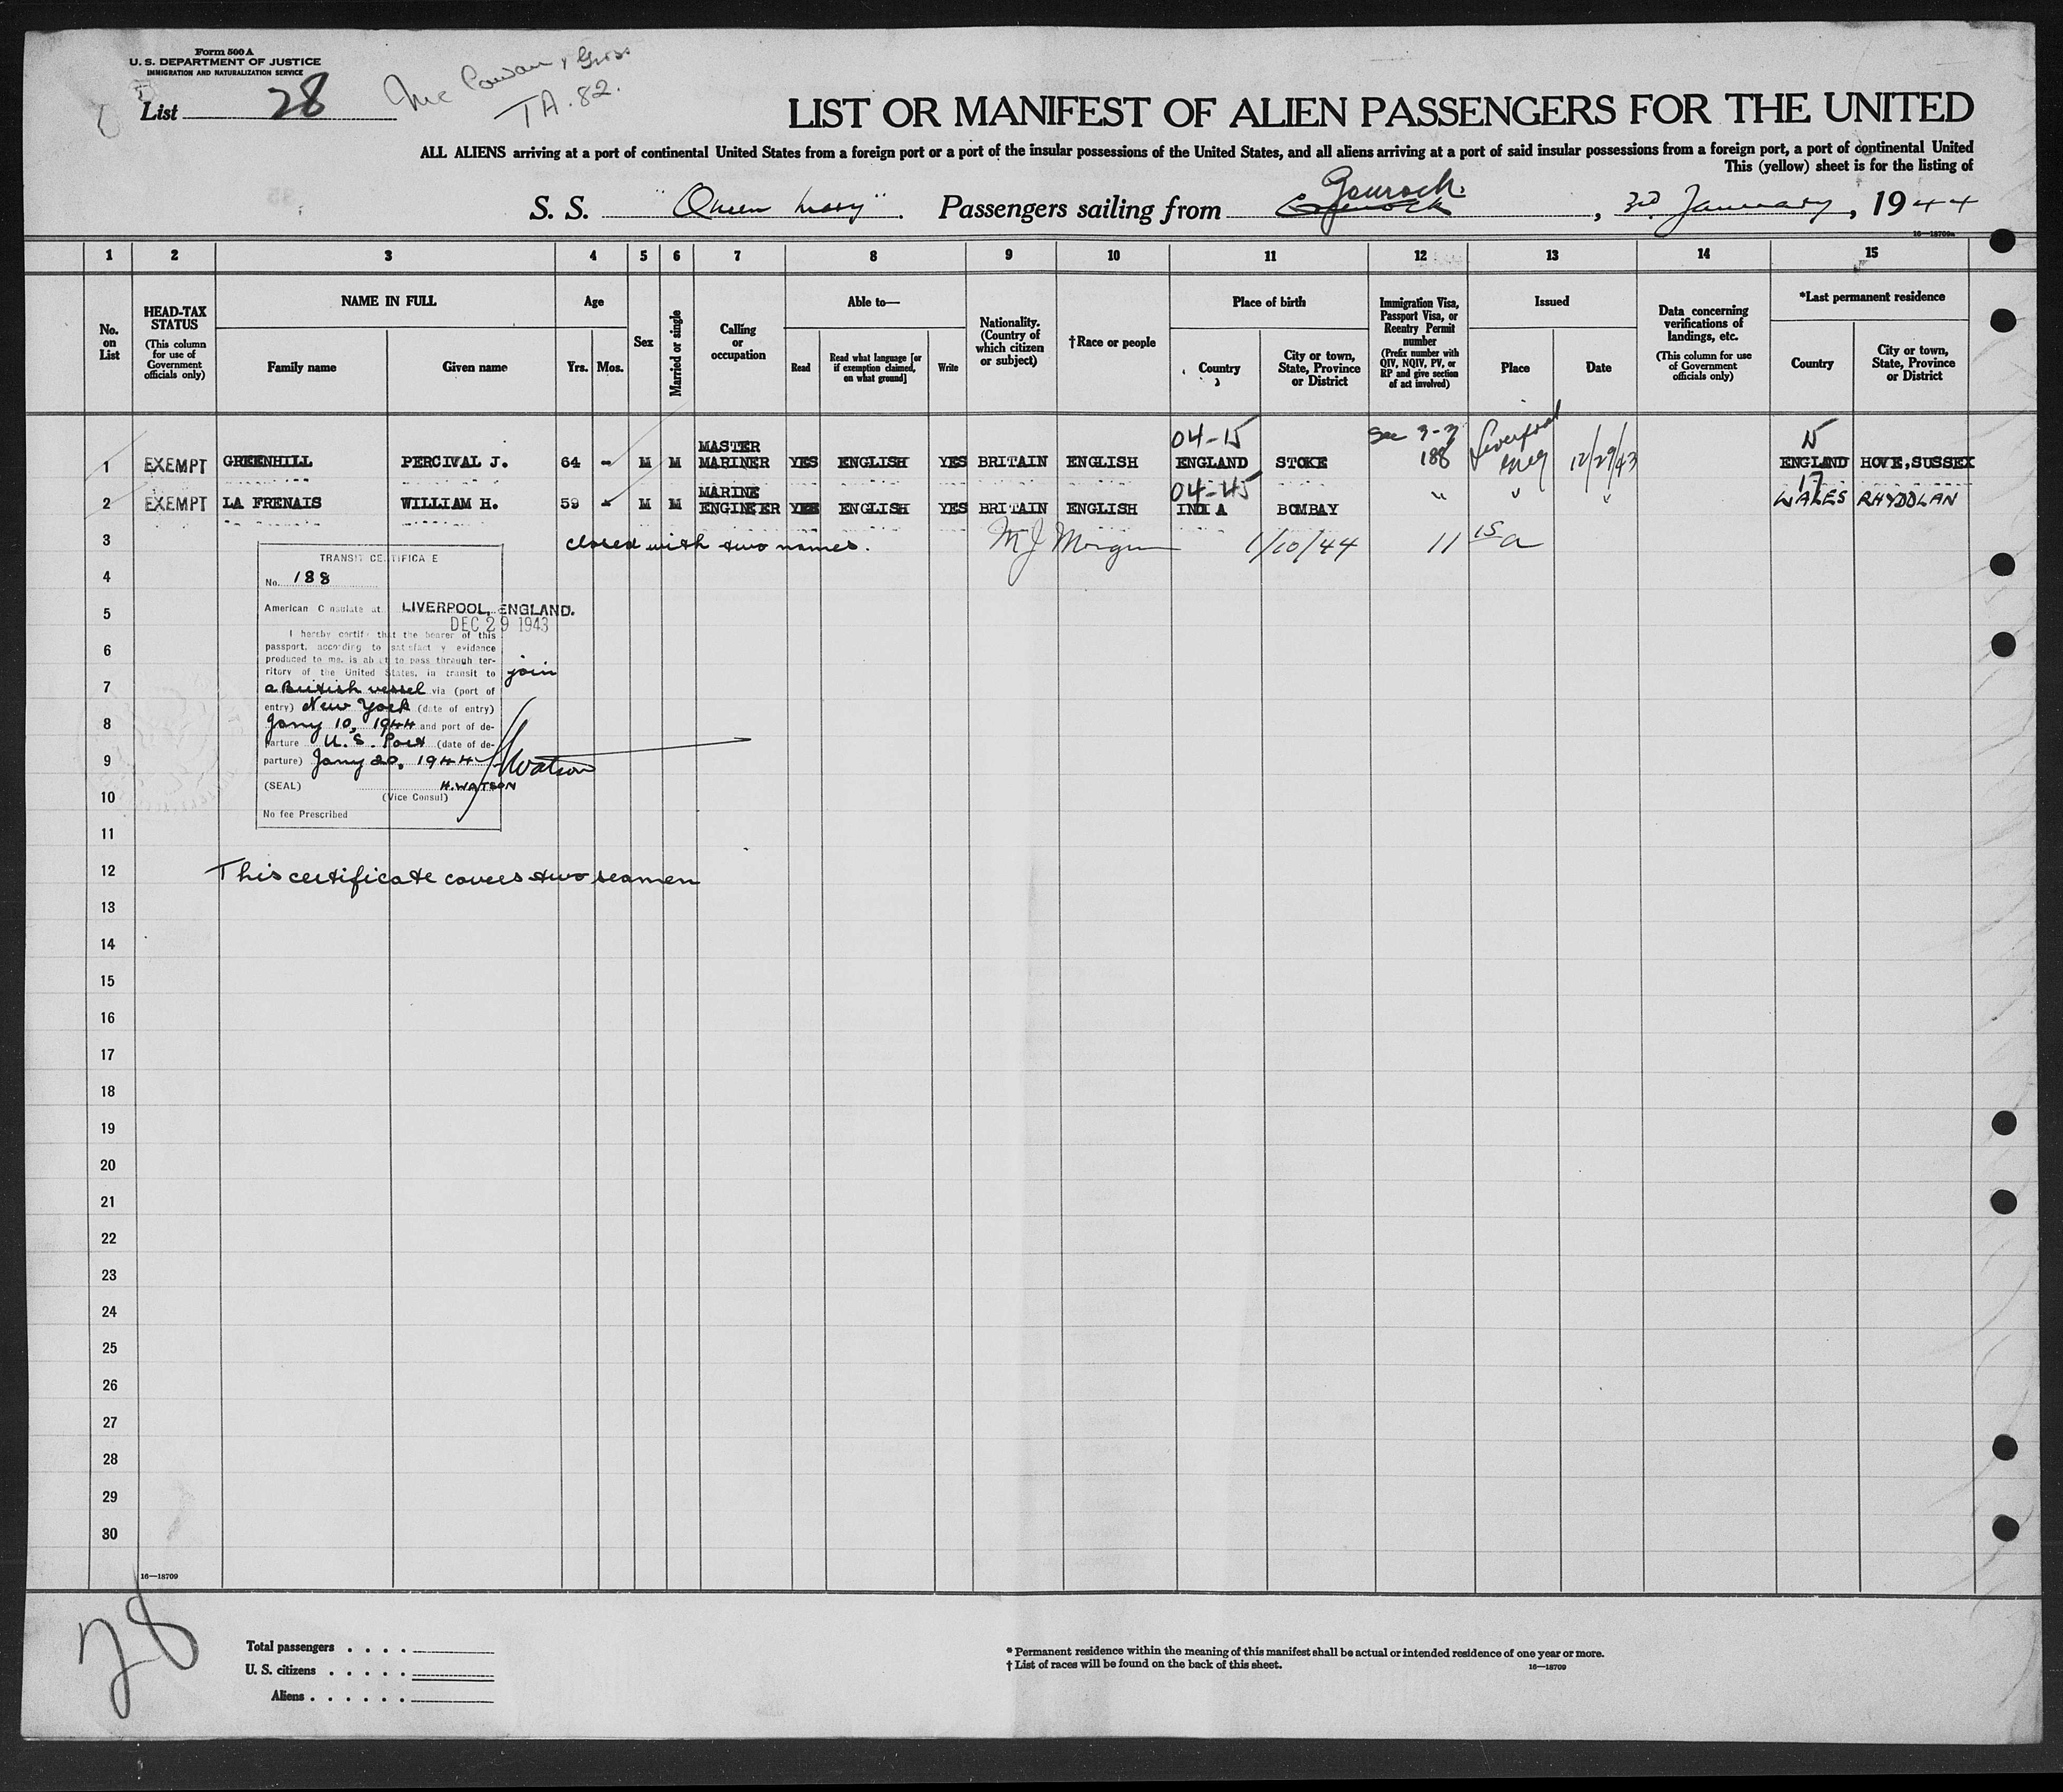 Form 500 A
U. S. DEPARTMENT OF JUSTICE
IMMIGRATION AND NATURALIZATION SERVICE
List 28
T A. 82.
LIST OR MANIFEST OF ALIEN PASSENGERS FOR THE UNITED
ALL ALIENS arriving at a port of continental United States from a foreign port or a port of the insular possessions of the United States, and all aliens arriving at a port of said insular possessions from a foreign port, a port of continental United
This (yellow) sheet is for the listing of
S. S. "Queen Mary". Passengers sailing from Gourock. Greenock, 3rd January, 1944
16—18709a
1 2 3 4 5 6 7 8 9 10 11 12 13 14 15
No. on List
HEAD-TAX STATUS
(This column for use of Government officials only)
NAME IN FULL
Family name Given name
Age
Yrs. Mos.
Sex
Married or single
Calling or occupation
Able to—
Read
Read what language [or if exemption claimed, on what ground]
Write
Nationality. (Country of which citizen or subject)
†Race or people
Place of birth
Country
City or town, State, Province or District
Immigration Visa, Passport Visa, or Reentry Permit number
(Prefix number with QIV, NQIV, PV, or RP and give section of act involved)
Issued
Place Date
Data concerning verifications of landings, etc.
(This column for use of Government officials only)
*Last permanent residence
Country
City or town, State, Province or District
04-15 Sec 3-3 Liverpool 15
1 EXEMPT GREENHILL PERCIVAL J. 64 - M M MASTER MARINER YES ENGLISH YES BRITAIN ENGLISH ENGLAND STOKE 188 Eng 12/29/43 ENGLAND HOVE, SUSSEX
04-45 17
2 EXEMPT LA FRENAIS WILLIAM H. 59 - M M MARINE ENGINEER YES ENGLISH YES BRITAIN ENGLISH INDIA BOMBAY " " " WALES RHYDDLAN
3 closed with two names. M J Morgan 1/10/44 11 15 a
TRANSIT CERTIFICATE
4 No. 188
5 American Consulate at LIVERPOOL, ENGLAND.
DEC 29 1943
I hereby certify that the bearer of this
6 passport, according to satisfactory evidence
produced to me, is about to pass through ter-
ritory of the United States, in transit to join
7 a British vessel via (port of
entry) New York (date of entry)
8 Jany 10, 1944 and port of de-
parture U. S. Port (date of de-
9 parture) Jany 20, 1944 HWatson
(SEAL) H. WATSON
10 (Vice Consul)
No fee Prescribed
11
12 This certificate covers two seamen
13
14
15
16
17
18
19
20
21
22
23
24
25
26
27
28
29
30
16—18709
28
Total passengers . . . .
U. S. citizens . . . . .
Aliens . . . . . .
* Permanent residence within the meaning of this manifest shall be actual or intended residence of one year or more.
† List of races will be found on the back of this sheet.
16—18709